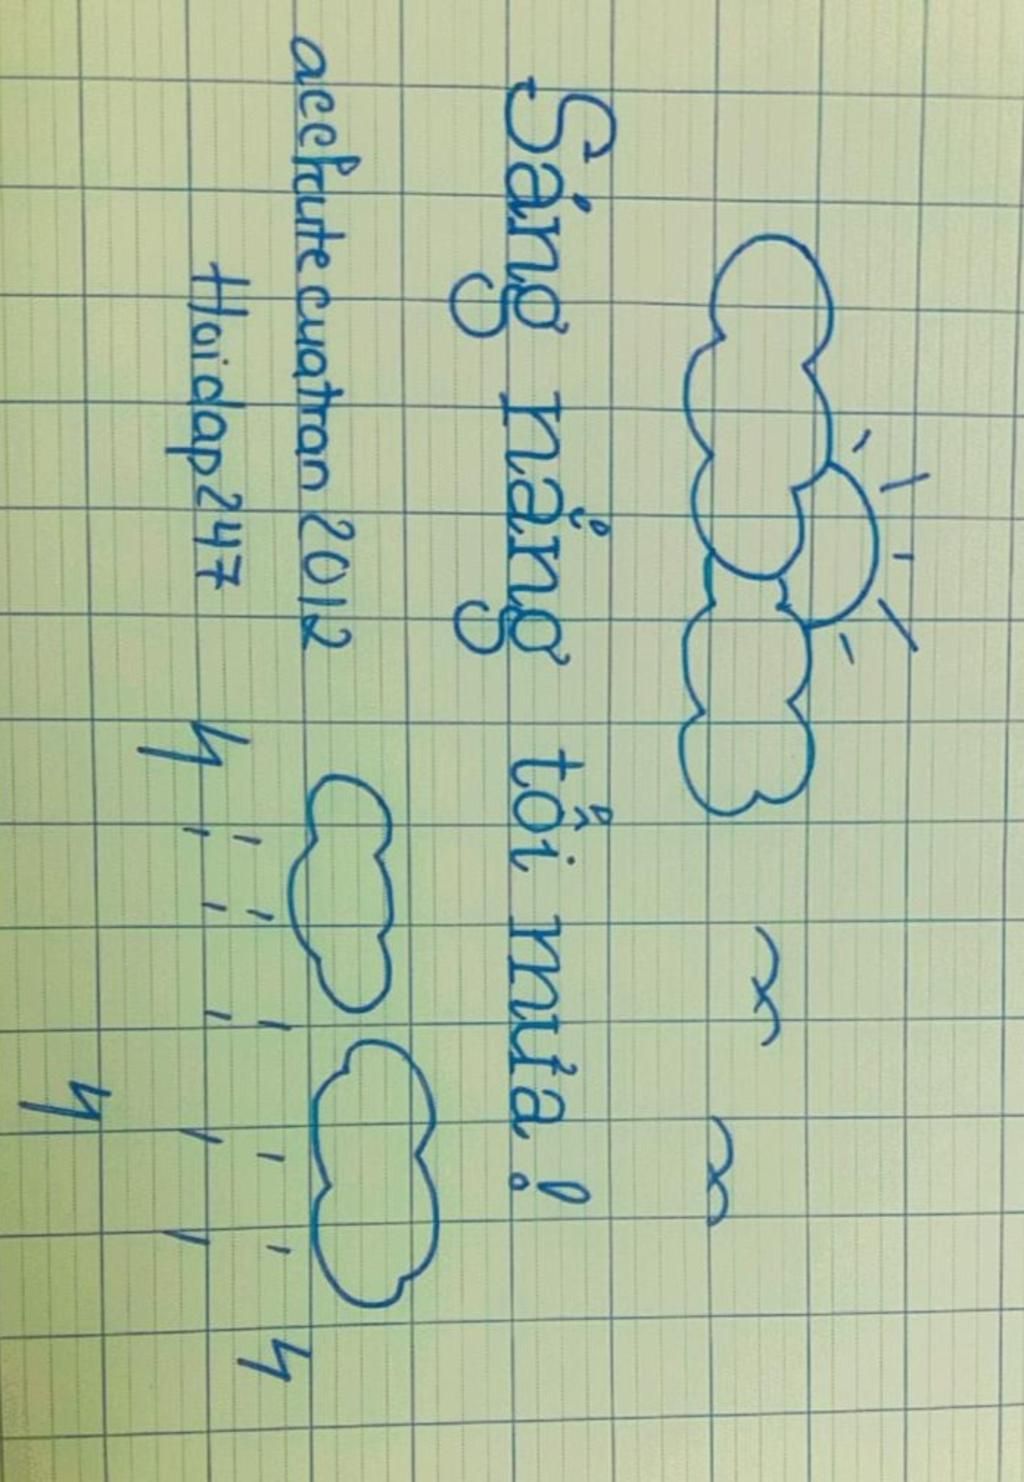 Sáng nắng tối mưa!
acchutecuatran2012
Hoidap247